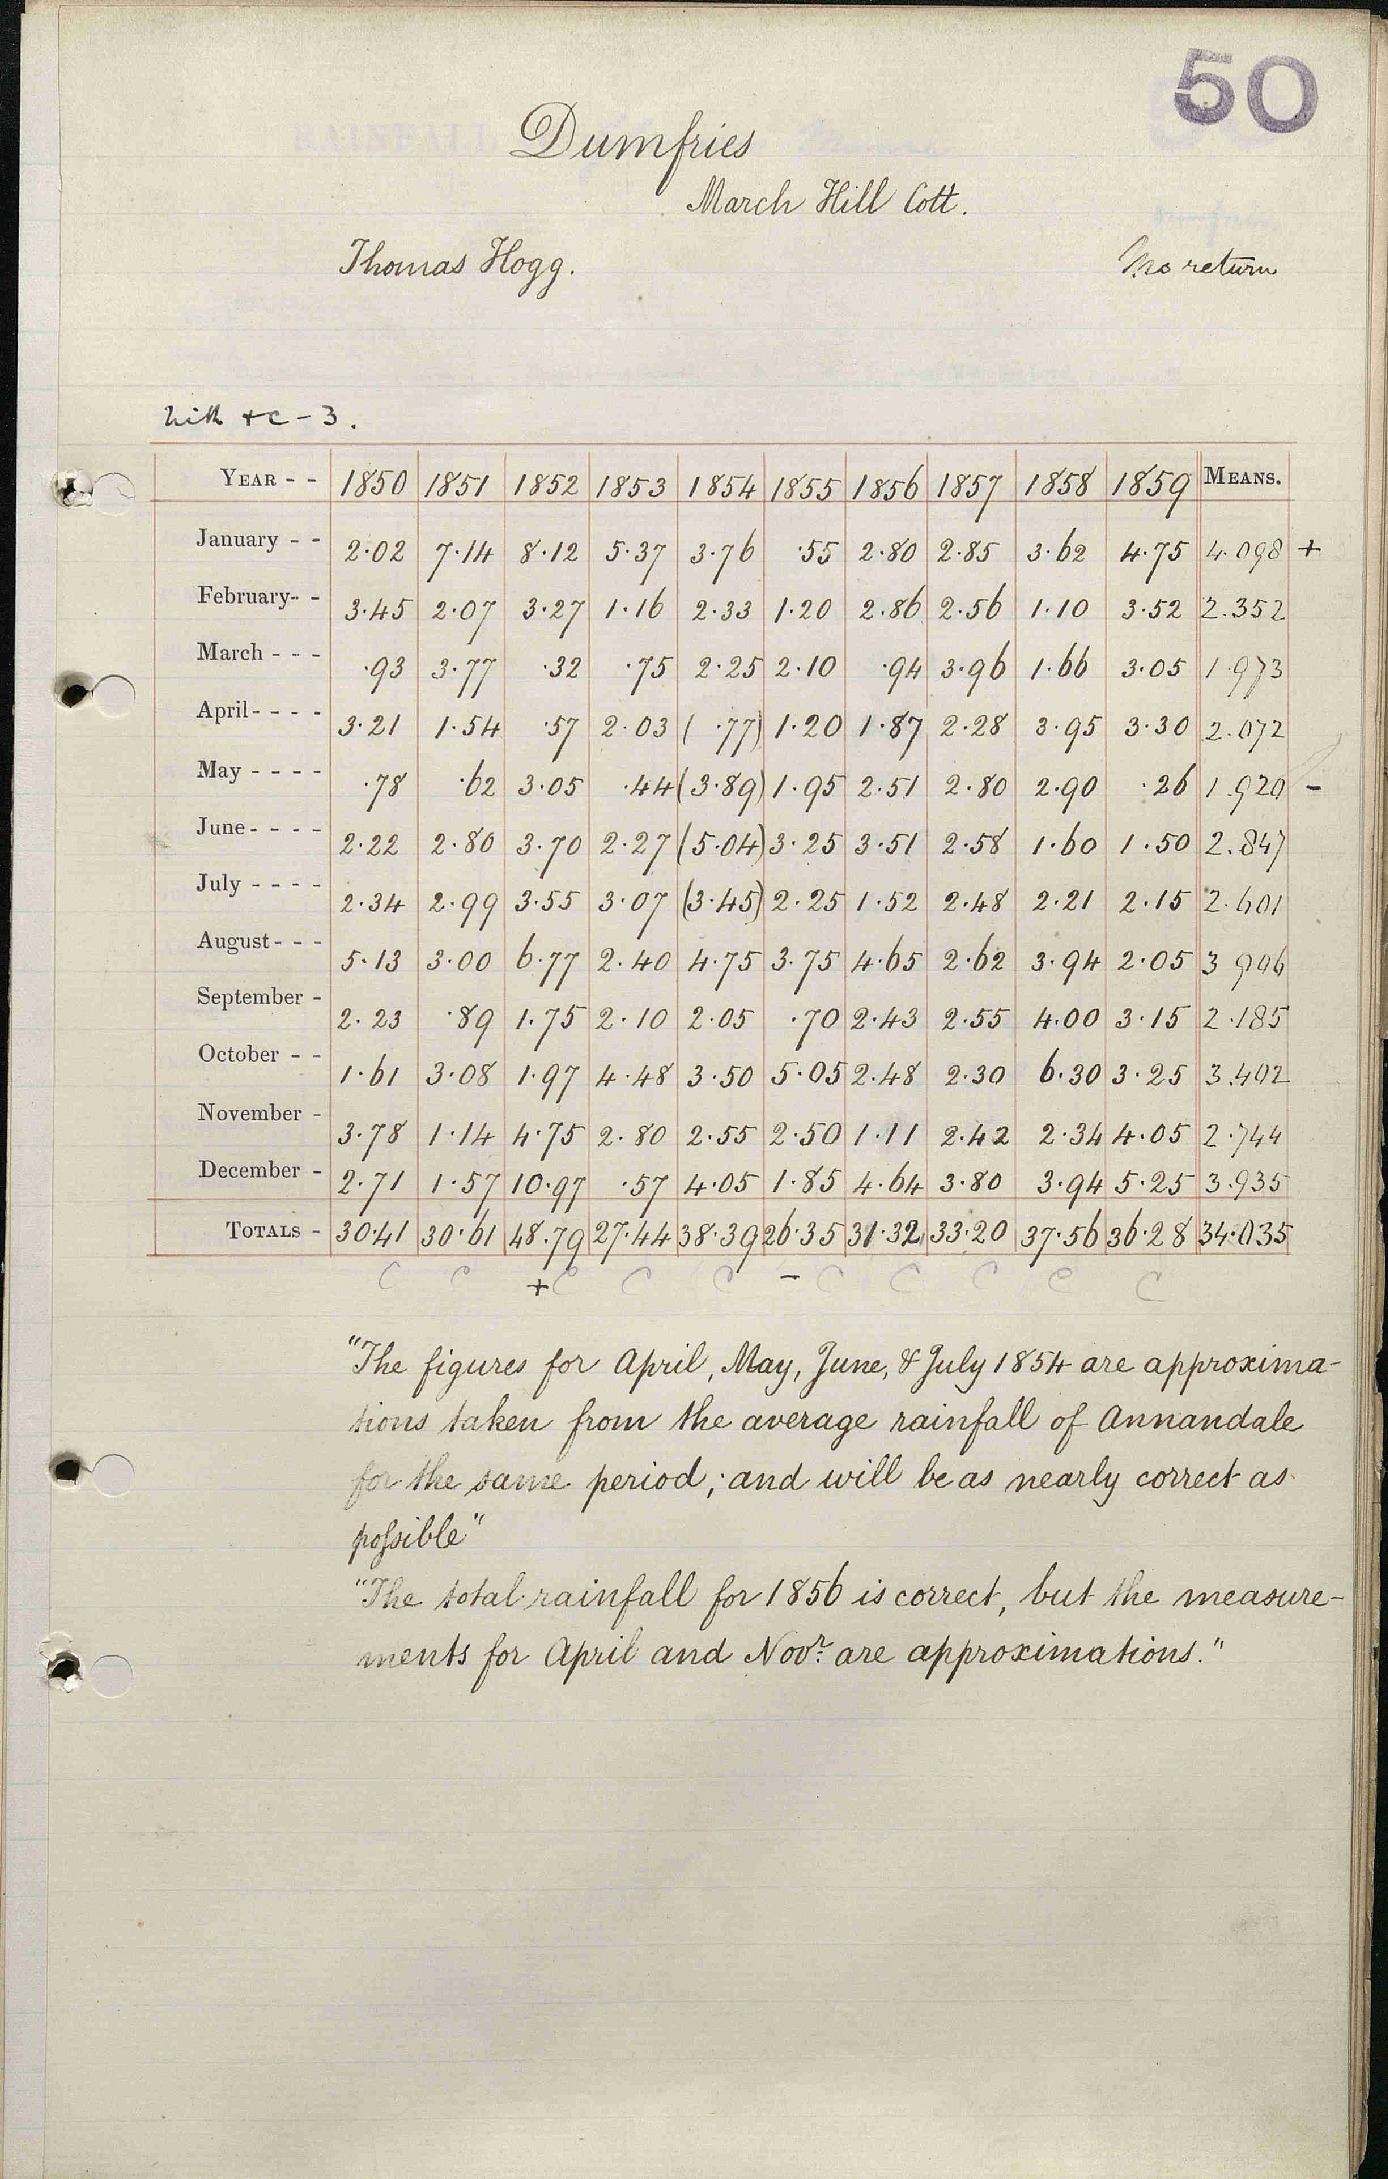 50
Dumfries
March Hill Cott.
Thomas Hogg. No return
+ C - 3.
YEAR - - 1850 1851 1852 1853 1854 1855 1856 1857 1858 1859 MEANS.
January - - 2·02 7·14 8·12 5·37 3·76 ·55 2·80 2·85 3·62 4·75 4.098 +
February- - 3·45 2·07 3·27 1·16 2·33 1·20 2·86 2·56 1·10 3·52 2.352
March - - - ·93 3·77 ·32 ·75 2·25 2·10 ·94 3·96 1·66 3·05 1.973
April- - - - 3·21 1·54 ·57 2·03 ( ·77) 1·20 1·87 2·28 3·95 3·30 2.072
May - - - - ·78 ·62 3·05 ·44 (3·89) 1·95 2·51 2·80 2·90 ·26 1.920 -
June- - - - 2·22 2·80 3·70 2·27 (5·04) 3·25 3·51 2·58 1·60 1·50 2.847
July - - - - 2·34 2·99 3·55 3·07 (3·45) 2·25 1·52 2·48 2·21 2·15 2.601
August- - - 5·13 3·00 6·77 2·40 4·75 3·75 4·65 2·62 3·94 2·05 3.906
September - 2·23 ·89 1·75 2·10 2·05 ·70 2·43 2·55 4·00 3·15 2.185
October - - 1·61 3·08 1·97 4·48 3·50 5·05 2·48 2·30 6·30 3·25 3.402
November - 3·78 1·14 4·75 2·80 2·55 2·50 1·11 2·42 2·34 4·05 2.744
December - 2·71 1·57 10·97 ·57 4·05 1·85 4·64 3·80 3·94 5·25 3.935
TOTALS - 30·41 30·61 48·79 27·44 38·39 26·35 31·32 33·20 37·56 36·28 34·035
C C + C C C - C C C C C
"The figures for April, May, June, & July 1854 are approxima-
tions taken from the average rainfall of Annandale
for the same period; and will be as nearly correct as
possible"
"The total rainfall for 1856 is correct, but the measure-
ments for April and Novr. are approximations."